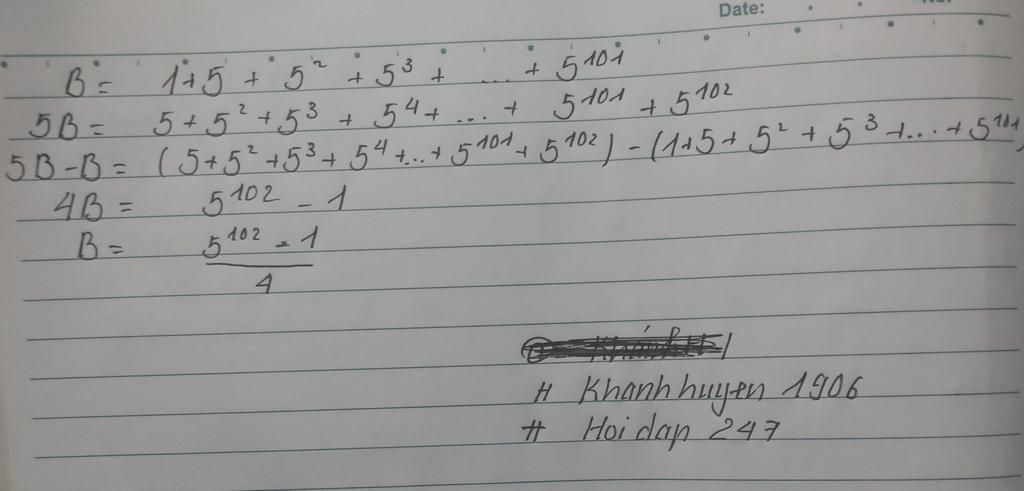 Date:
B = 1+5 + 5² + 5³ + ... + 5¹⁰¹
5B = 5 + 5² + 5³ + 5⁴ + ... + 5¹⁰¹ + 5¹⁰²
5B - B = (5+5²+5³+5⁴+...+5¹⁰¹+5¹⁰²) - (1+5+5²+5³+...+5¹⁰¹)
4B = 5¹⁰² - 1
B = 5¹⁰² - 1
4
# Khanh huyen 1906
# Hoi dap 247